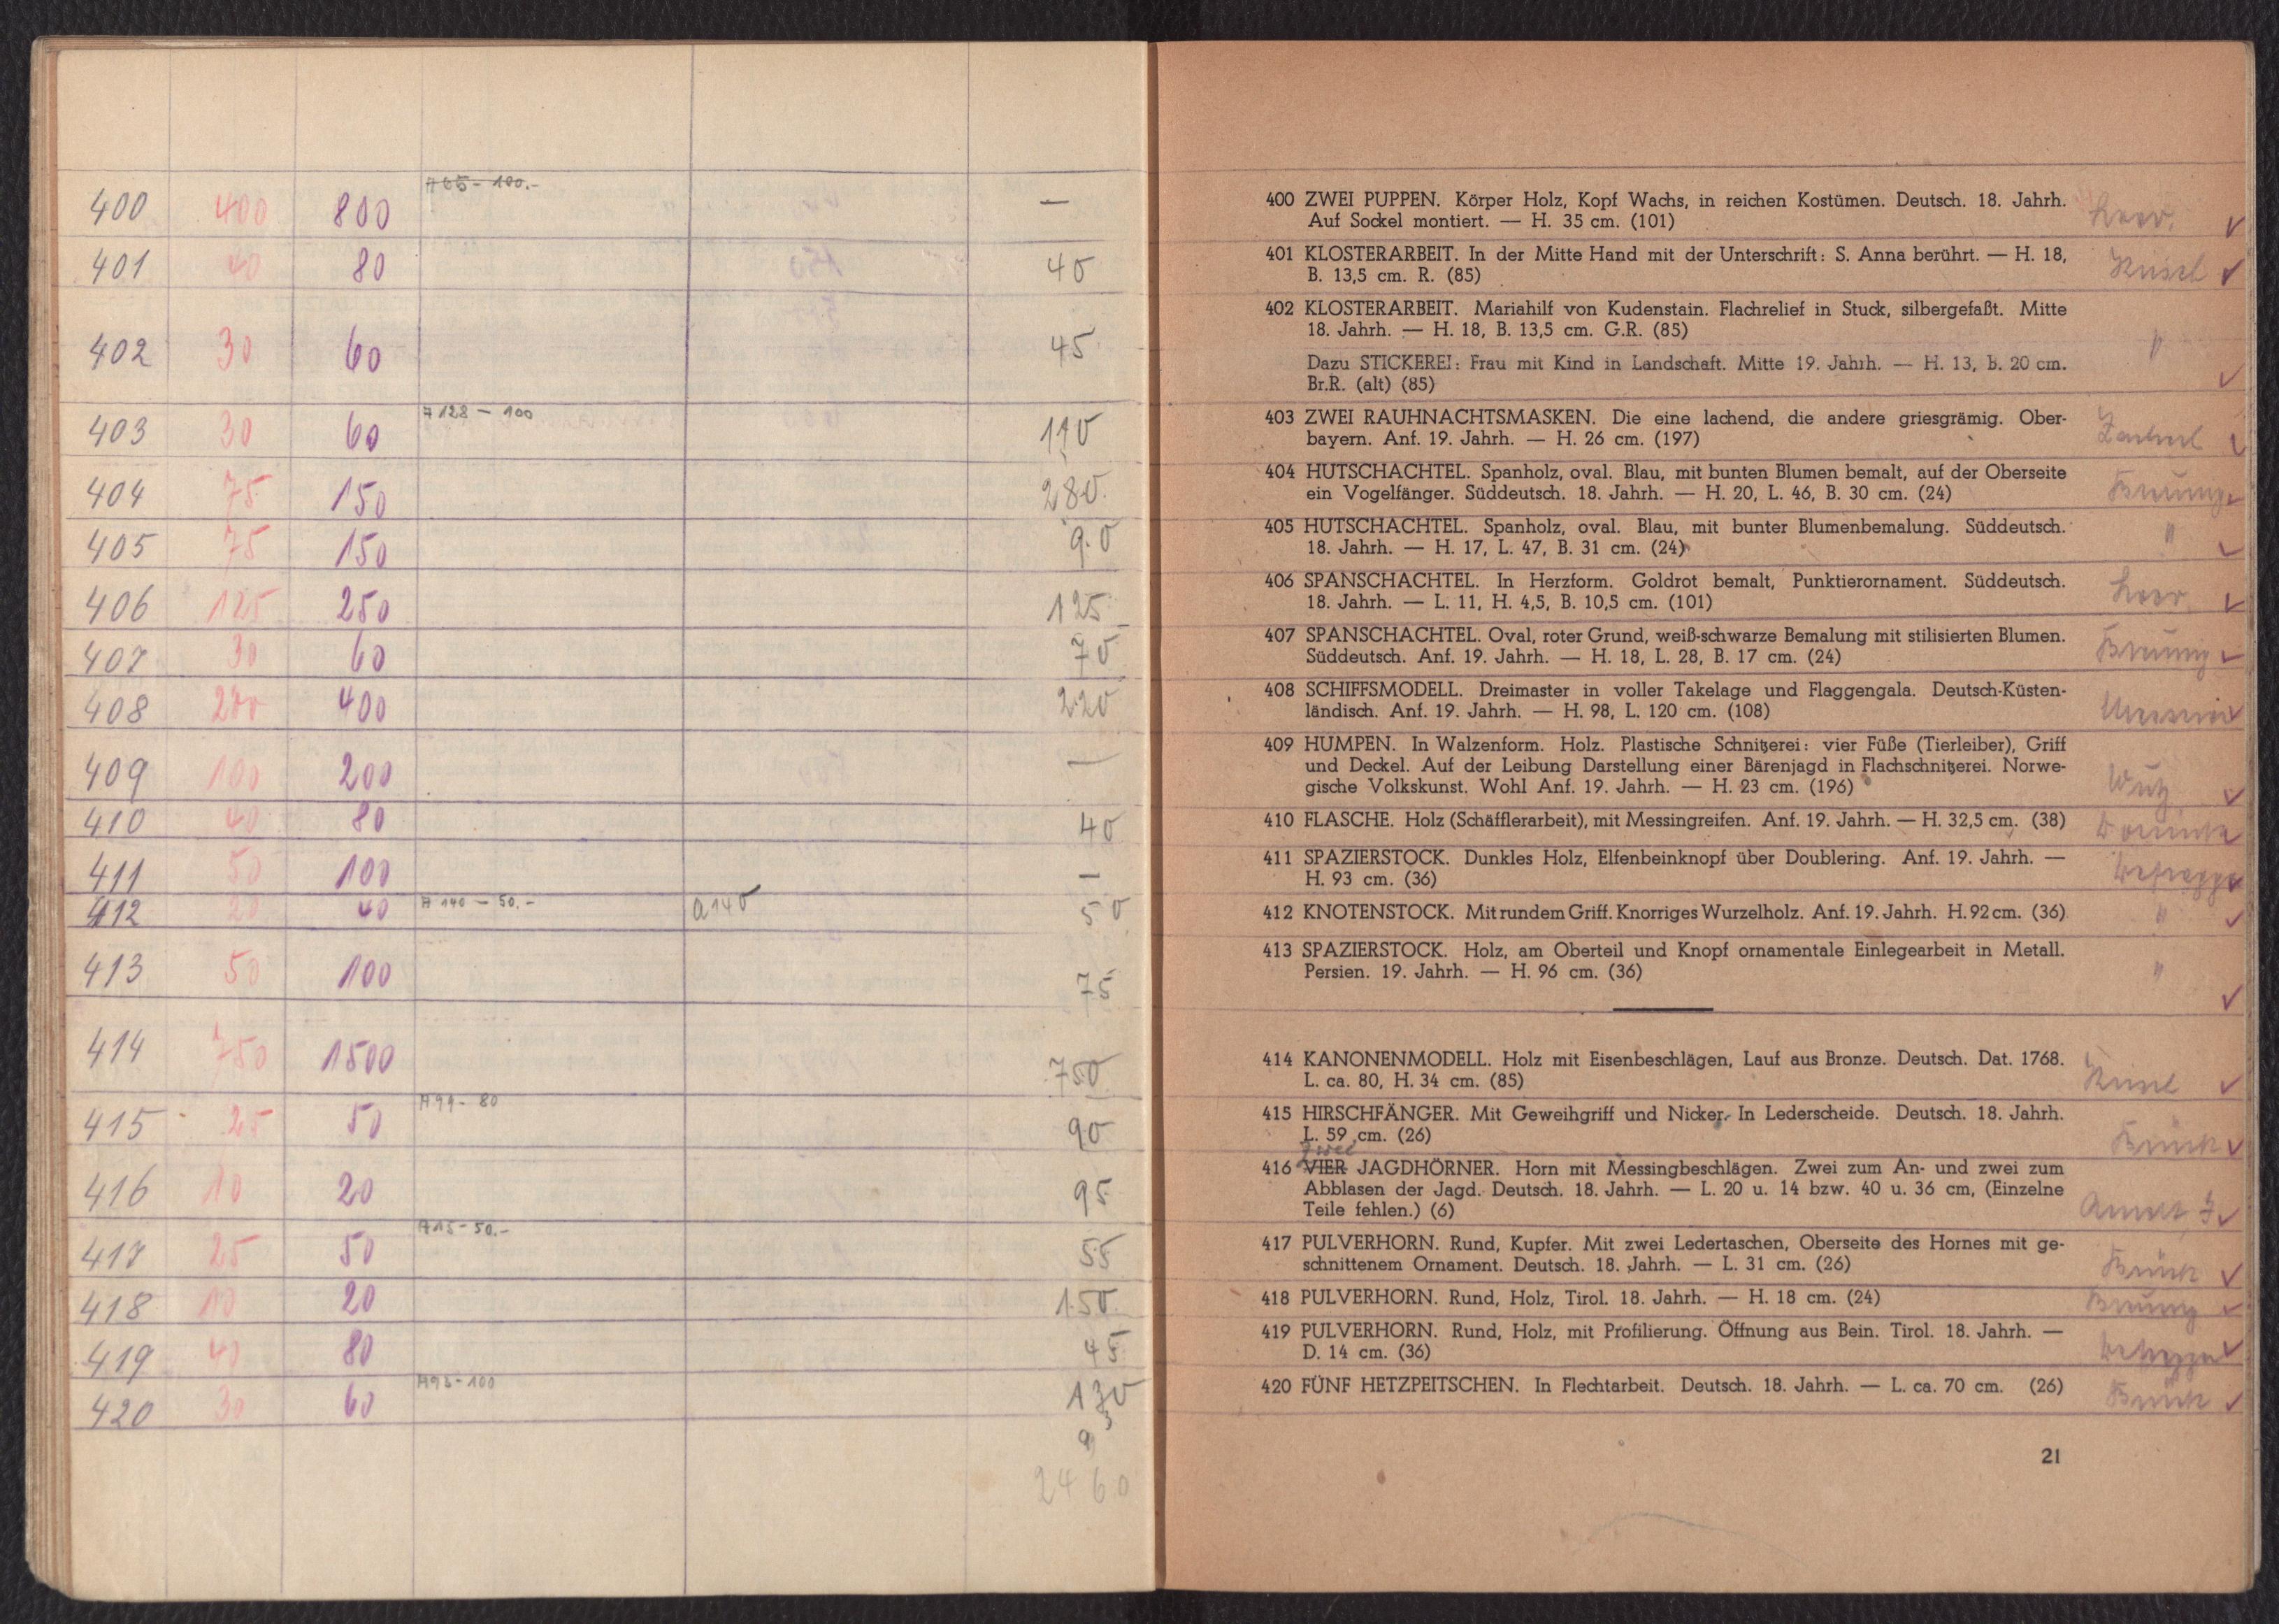 A 65 - 100.-
400 400 800 —
401 40 80 40
402 30 60 45
A 128 - 100
403 30 60 110
404 75 150 280.
405 75 150 90
406 125 250 125
407 30 60 70
408 200 400 220
409 100 200 —
410 40 80 40
411 50 100 —
412 20 40 A 140 - 50.- a 140 50
413 50 100 75
414 750 1500 750
A 99 - 80
415 25 50 90
416 10 20 95
A 15 - 50.-
417 25 50 55
418 10 20 150
419 40 80 45
A 93 - 100
420 30 60 130
9
2460
400 ZWEI PUPPEN. Körper Holz, Kopf Wachs, in reichen Kostümen. Deutsch. 18. Jahrh.
Auf Sockel montiert. — H. 35 cm. (101)
401 KLOSTERARBEIT. In der Mitte Hand mit der Unterschrift: S. Anna berührt. — H. 18,
B. 13,5 cm. R. (85)
402 KLOSTERARBEIT. Mariahilf von Kudenstain. Flachrelief in Stuck, silbergefaßt. Mitte
18. Jahrh. — H. 18, B. 13,5 cm. G.R. (85)
"
Dazu STICKEREI: Frau mit Kind in Landschaft. Mitte 19. Jahrh. — H. 13, B. 20 cm.
Br.R. (alt) (85)
403 ZWEI RAUHNACHTSMASKEN. Die eine lachend, die andere griesgrämig. Ober-
bayern. Anf. 19. Jahrh. — H. 26 cm. (197)
404 HUTSCHACHTEL. Spanholz, oval. Blau, mit bunten Blumen bemalt, auf der Oberseite
ein Vogelfänger. Süddeutsch. 18. Jahrh. — H. 20, L. 46, B. 30 cm. (24)
405 HUTSCHACHTEL. Spanholz, oval. Blau, mit bunter Blumenbemalung. Süddeutsch.
18. Jahrh. — H. 17, L. 47, B. 31 cm. (24) "
406 SPANSCHACHTEL. In Herzform. Goldrot bemalt, Punktierornament. Süddeutsch.
18. Jahrh. — L. 11, H. 4,5, B. 10,5 cm. (101)
407 SPANSCHACHTEL. Oval, roter Grund, weiß-schwarze Bemalung mit stilisierten Blumen.
Süddeutsch. Anf. 19. Jahrh. — H. 18, L. 28, B. 17 cm. (24)
408 SCHIFFSMODELL. Dreimaster in voller Takelage und Flaggengala. Deutsch-Küsten-
ländisch. Anf. 19. Jahrh. — H. 98, L. 120 cm. (108)
409 HUMPEN. In Walzenform. Holz. Plastische Schnitzerei: vier Füße (Tierleiber), Griff
und Deckel. Auf der Leibung Darstellung einer Bärenjagd in Flachschnitzerei. Norwe-
gische Volkskunst. Wohl Anf. 19. Jahrh. — H. 23 cm. (196)
410 FLASCHE. Holz (Schäfflerarbeit), mit Messingreifen. Anf. 19. Jahrh. — H. 32,5 cm. (38)
411 SPAZIERSTOCK. Dunkles Holz, Elfenbeinknopf über Doublering. Anf. 19. Jahrh. —
H. 93 cm. (36)
412 KNOTENSTOCK. Mit rundem Griff. Knorriges Wurzelholz. Anf. 19. Jahrh. H. 92 cm. (36) "
413 SPAZIERSTOCK. Holz, am Oberteil und Knopf ornamentale Einlegearbeit in Metall.
Persien. 19. Jahrh. — H. 96 cm. (36) "
414 KANONENMODELL. Holz mit Eisenbeschlägen, Lauf aus Bronze. Deutsch. Dat. 1768.
L. ca. 80, H. 34 cm. (85)
415 HIRSCHFÄNGER. Mit Geweihgriff und Nicker. In Lederscheide. Deutsch. 18. Jahrh.
L. 59 cm. (26)
Zwei
416 VIER JAGDHÖRNER. Horn mit Messingbeschlägen. Zwei zum An- und zwei zum
Abblasen der Jagd. Deutsch. 18. Jahrh. — L. 20 u. 14 bzw. 40 u. 36 cm, (Einzelne
Teile fehlen.) (6)
417 PULVERHORN. Rund, Kupfer. Mit zwei Ledertaschen, Oberseite des Hornes mit ge-
schnittenem Ornament. Deutsch. 18. Jahrh. — L. 31 cm. (26)
418 PULVERHORN. Rund, Holz, Tirol. 18. Jahrh. — H. 18 cm. (24)
419 PULVERHORN. Rund, Holz, mit Profilierung. Öffnung aus Bein. Tirol. 18. Jahrh. —
D. 14 cm. (36)
420 FÜNF HETZPEITSCHEN. In Flechtarbeit. Deutsch. 18. Jahrh. — L. ca. 70 cm. (26)
21